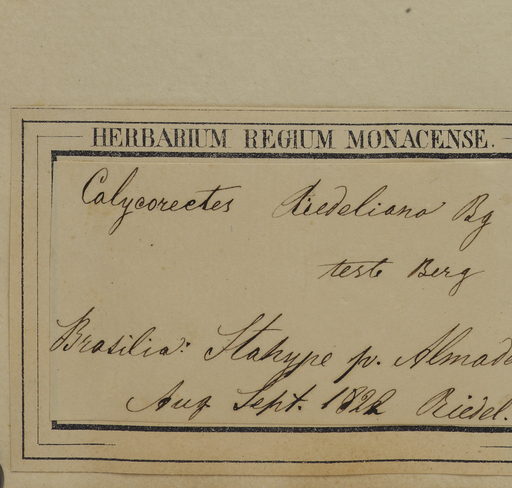 HERBARIUM REGIUM MONACENSE.
Calycorectes Riedeliana Bg
teste Berg
Brasilia: Itahype p. Almada
Aug Sept. 1822 Riedel.